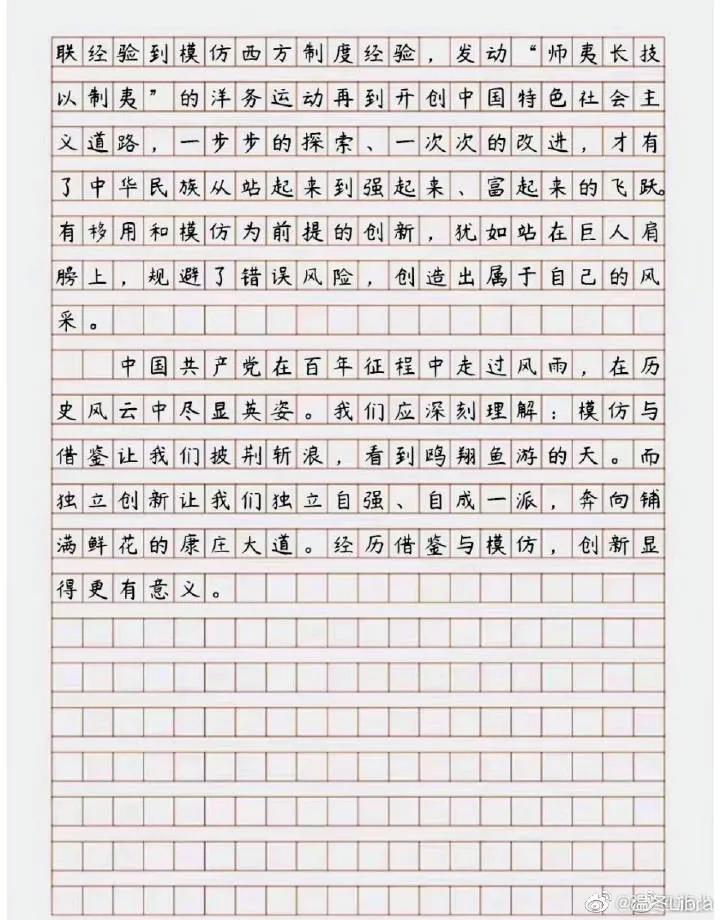 联经验到模仿西方制度经验，发动“师夷长技
以制夷”的洋务运动再到开创中国特色社会主
义道路，一步步的探索、一次次的改进，才有
了中华民族从站起来到强起来、富起来的飞跃。
有移用和模仿为前提的创新，犹如站在巨人肩
膀上，规避了错误风险，创造出属于自己的风
采。
中国共产党在百年征程中走过风雨，在历
史风云中尽显英姿。我们应深刻理解：模仿与
借鉴让我们披荆斩浪，看到鸥翔鱼游的天。而
独立创新让我们独立自强、自成一派，奔向铺
满鲜花的康庄大道。经历借鉴与模仿，创新显
得更有意义。
@温冬Libra